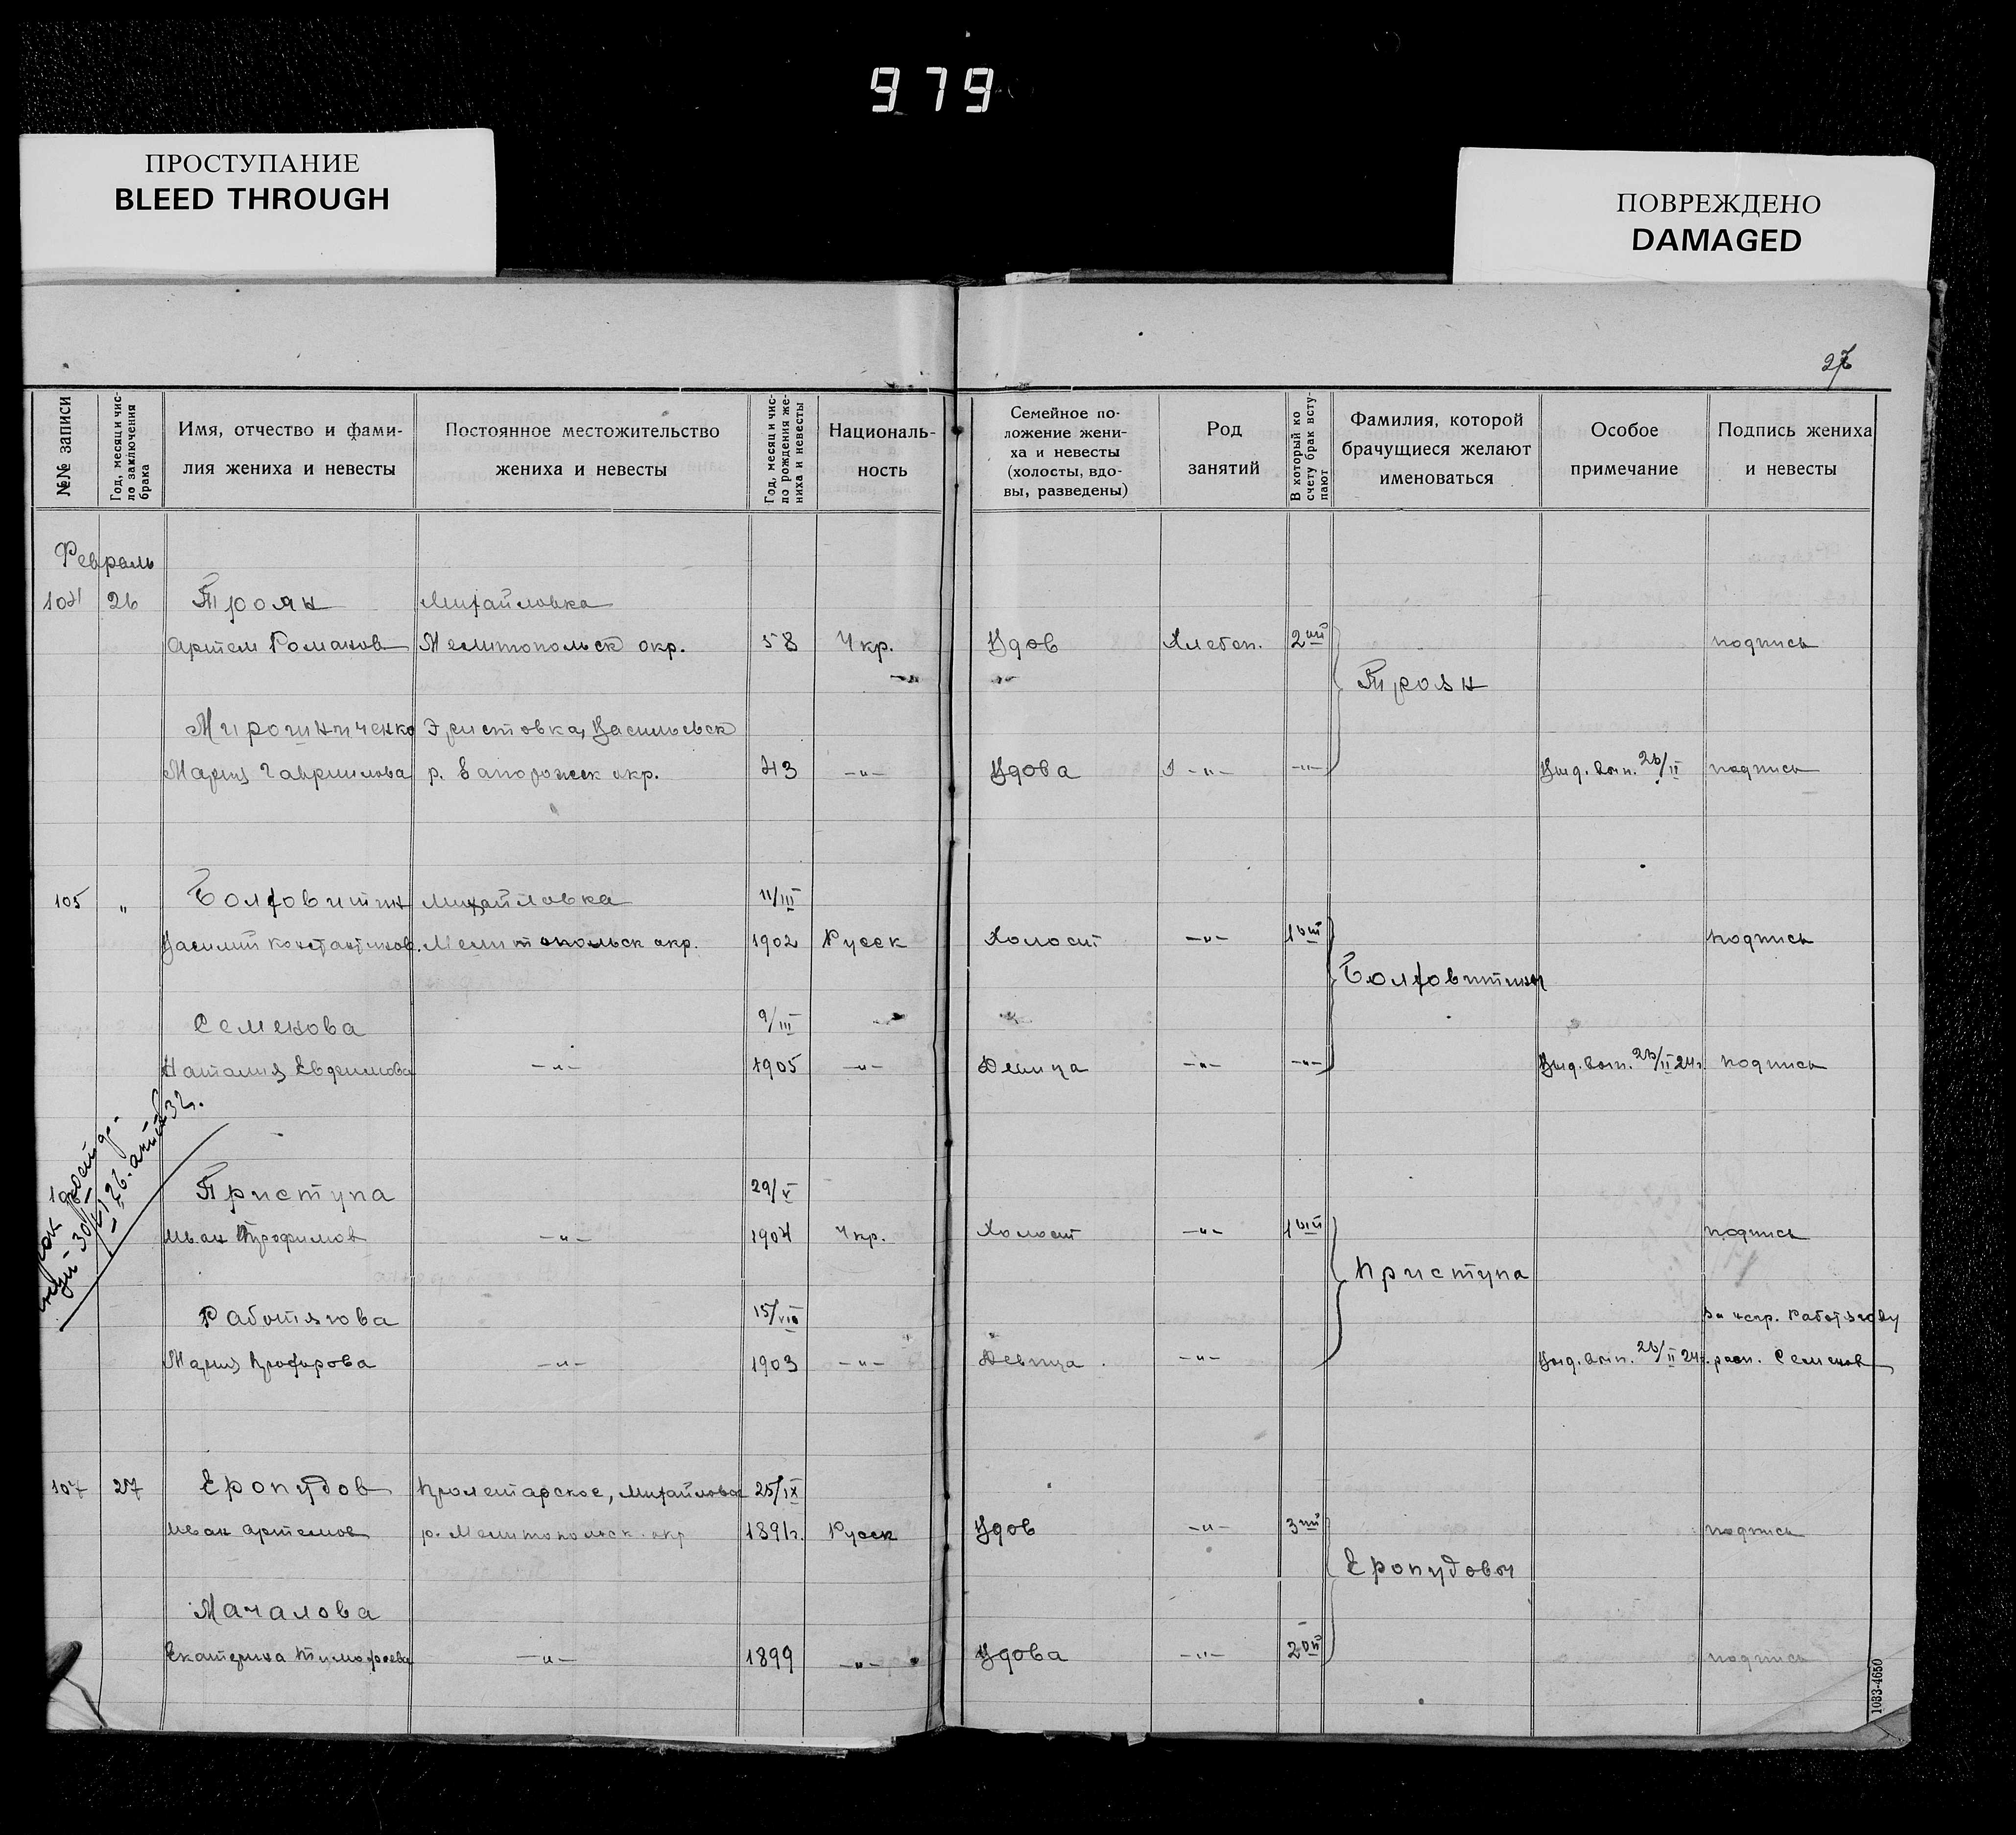 979
ПРОСТУПАНИЕ
BLEED THROUGH
ПОВРЕЖДЕНО
DAMAGED
27
№№ записи
Год, месяц и чис-
ло заключения
брака
Имя, отчество и фами-
лия жениха и невесты
Постоянное местожительство
жениха и невесты
Год, месяц и чис-
ло рождения же-
ниха и невесты
Националь-
ность
Семейное по-
ложение жени-
ха и невесты
(холосты, вдо-
вы, разведены)
Род
занятий
В который по
счету брак всту-
пают
Фамилия, которой
брачущиеся желают
именоваться
Особое
примечание
Подпись жениха
и невесты
Февраль
104 26 Троян Михайловка
Артем Романов Мелитопольск окр. 58 Укр. Вдов Хлебоп. 2ой подпись
Троян
Мирошниченко Христовка, Васильевск
Мария Гавриилова р. Запорожск окр. 43 -„- Вдова -„- -„- Выд. вып. 26/II подпись
105 „ Болховитин Михайловка 11/III
Василий Константинов. Мелитопольск окр. 1902 Русск Холост -„- 1ый подпись
Болховитины
Семенова 9/III
Наталия Евдокимова -„- 1905 -„- Девица -„- -„- Выд. вып. 26/II 24г. подпись
Приступа 29/V
Иван Трофимов -„- 1904 Укр. Холост -„- 1ый подпись
Приступа
Работягова 15/VIII за негр. Работягову
Мария -„- 1903 -„- Девица -„- Выд. вып. 26/II 24г. расп. Семенов
107 27 Еропудов Пролетарское, Михайловск 25/IX
Иван Артемов р. Мелитопольск. окр 1891г. Русск Вдов -„- 3ий подпись
Еропудовы
Мачалова
Екатерина Тимофеева -„- 1899 -„- Вдова -„- 2ой подпись
1033-4650